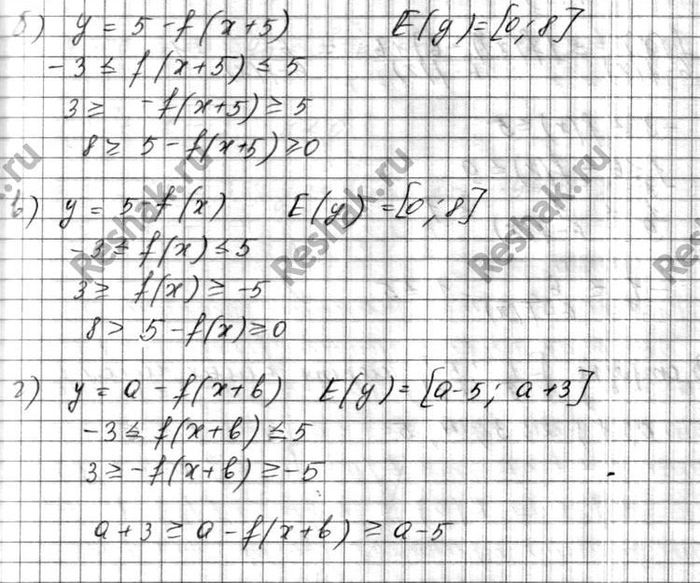 б) y = 5 - f(x+5) E(y) = [0; 8]
-3 ≤ f(x+5) ≤ 5
3 ≥ -f(x+5) ≥ 5
8 ≥ 5 - f(x+5) ≥ 0
в) y = 5 - f(x) E(y) = [0; 8]
-3 ≤ f(x) ≤ 5
3 ≥ f(x) ≥ -5
8 > 5 - f(x) ≥ 0
г) y = a - f(x+b) E(y) = [a-5; a+3]
-3 ≤ f(x+b) ≤ 5
3 ≥ -f(x+b) ≥ -5
a+3 ≥ a - f(x+b) ≥ a-5
Reshak.ru
Reshak.ru
Reshak.ru